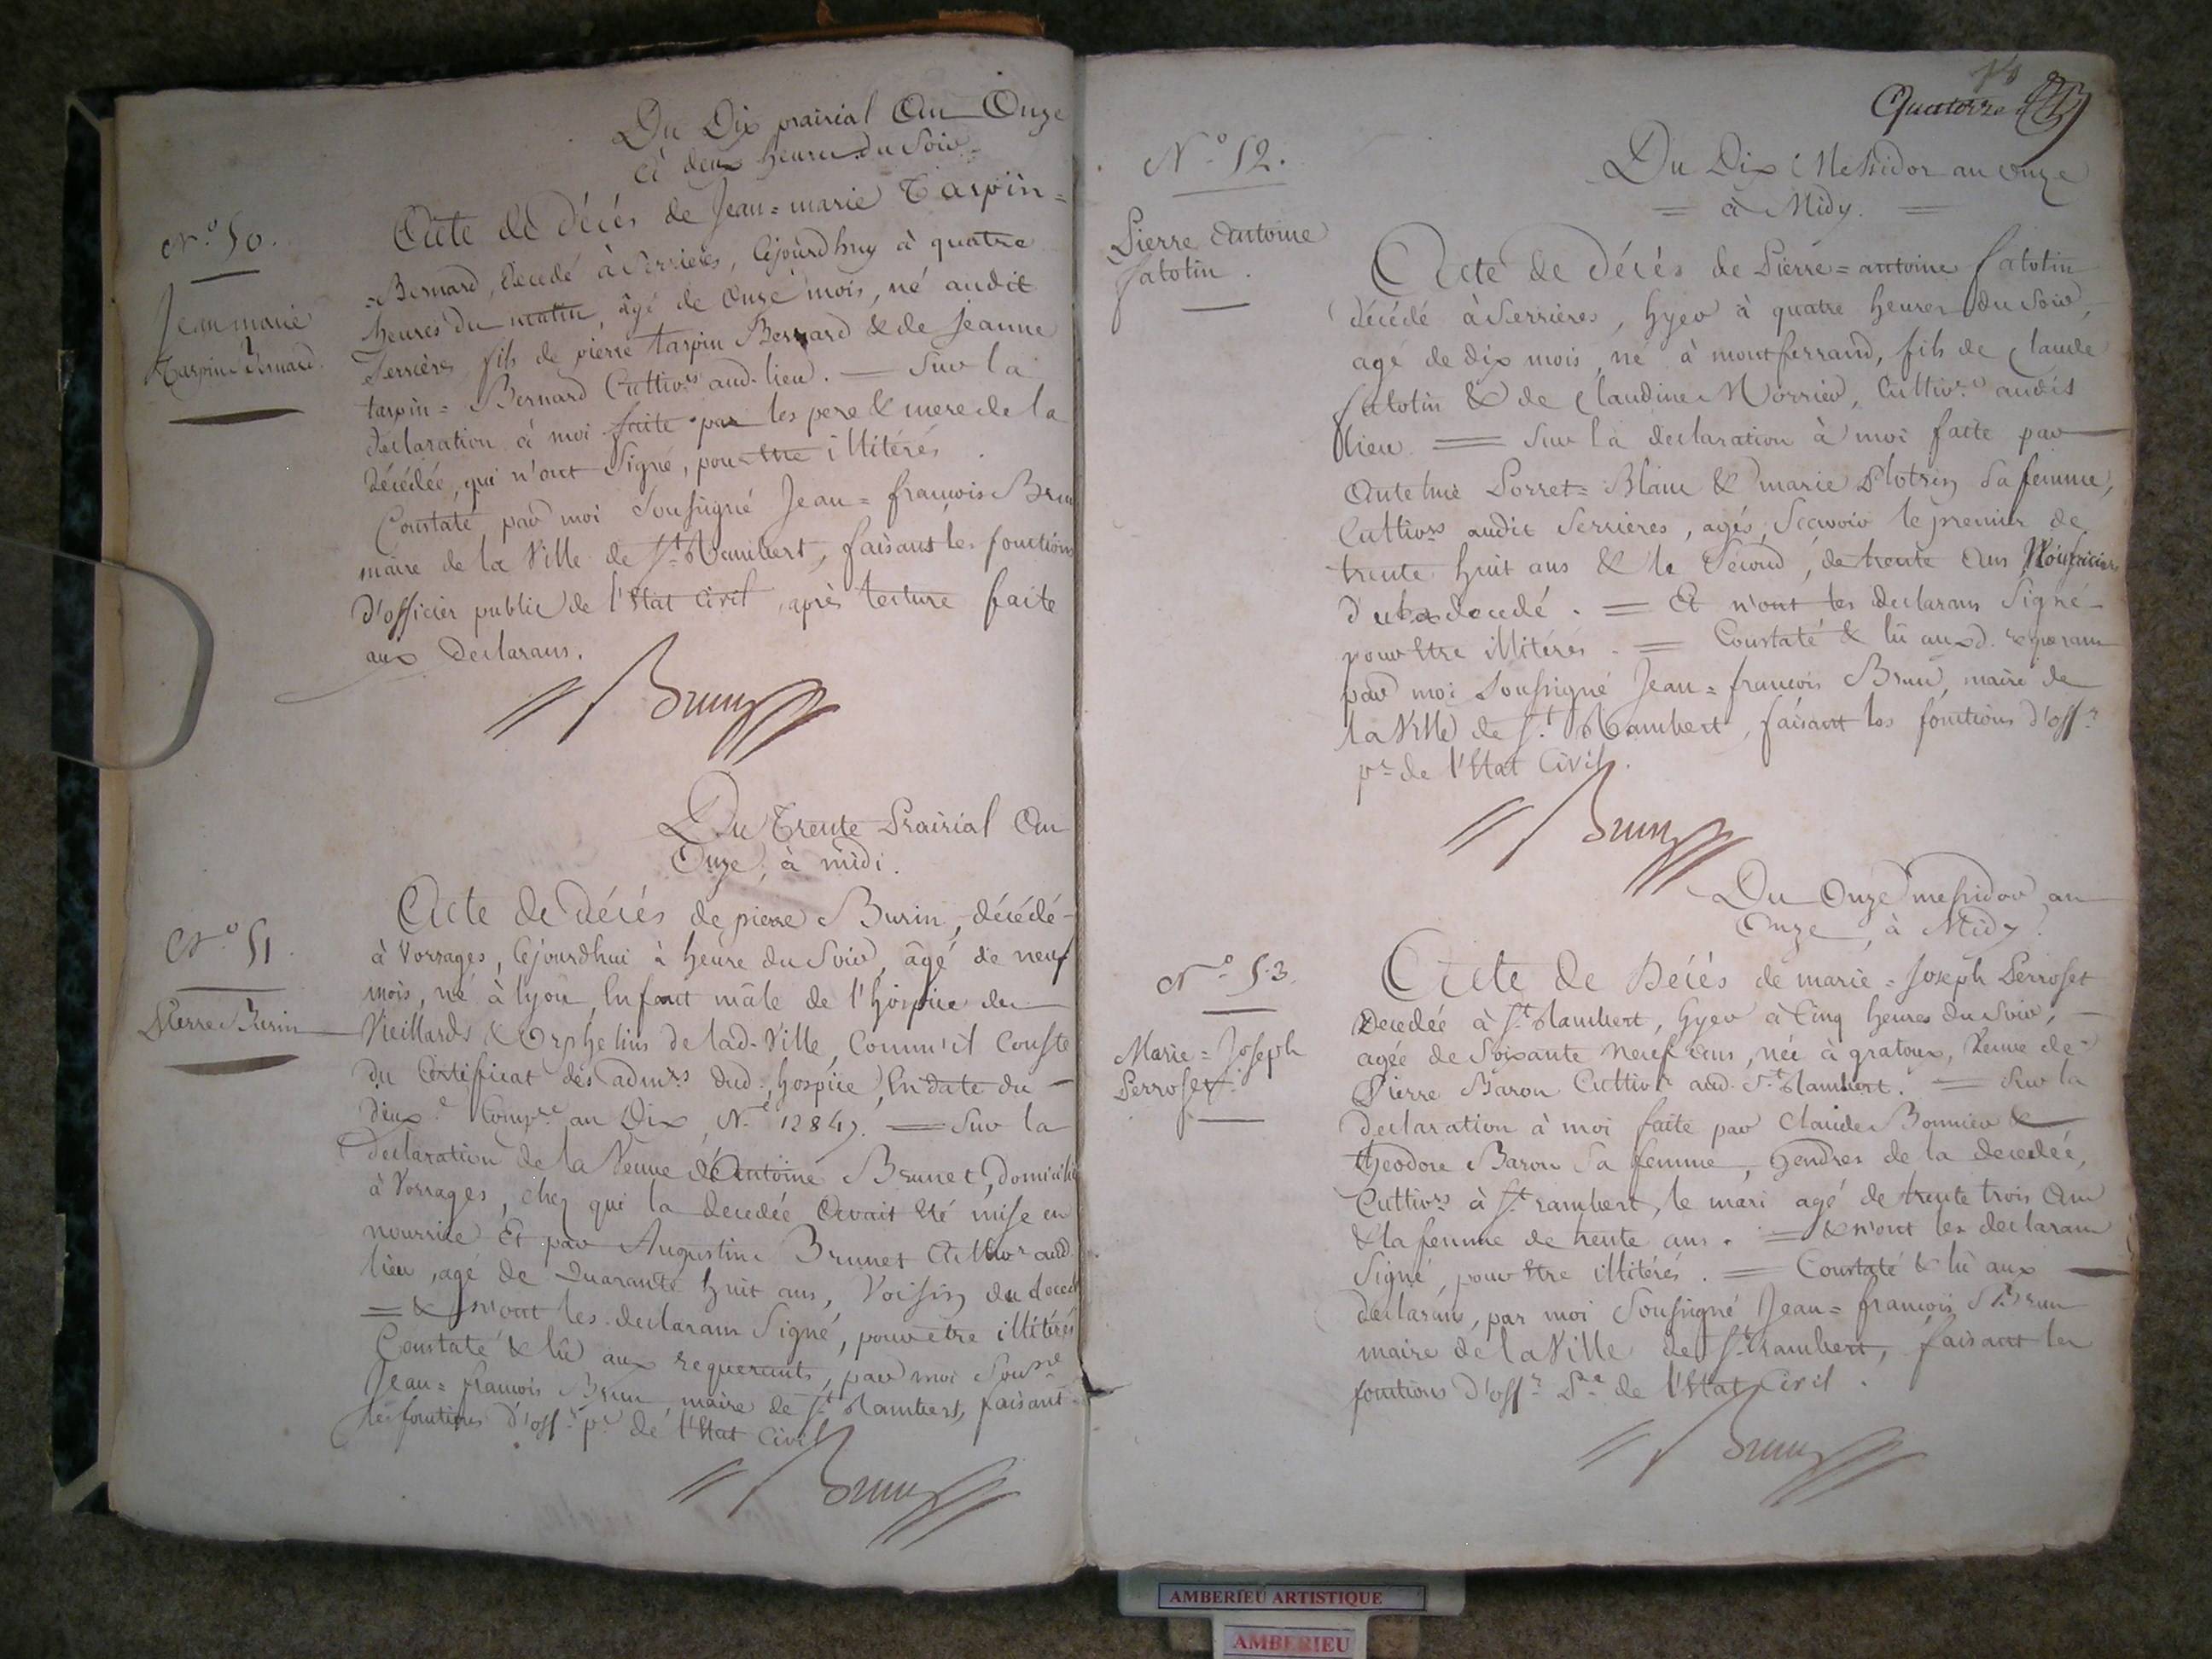 Du Dix prairial An Onze
à deux heures du Soir.
N.o 50.
Jean marie
Tarpin Bernard.
Acte de Décés de Jean=marie Tarpin=
=Bernard, Decedé à Serrieres, Cejourdhuy à quatre
heures du matin, âgé de Onze mois, né audit
Serrières fils de pierre tarpin Bernard & de Jeanne
tarpin= Bernard Cultiv.rs aud. lieu. — Sur la
declaration à moi faite par les pere & mere de la
décédée, qui n'ont Signé, pour être illitérés.
Constaté par moi Soussigné Jean=francois Brun
maire de la Ville de S.t Rambert, faisant les fonctions
d'officier public de l'Etat Civil, après lecture faite
aux Declarans.
Brun
Du Trente Prairial An
Onze, à midi.
N.o 51.
Pierre Burin
Acte de Décés de pierre Burin, décédé
à Vorrages, Cejourdhui à heure du Soir, âgé de neuf
mois, né à lyon, Enfant mâle de l'hospice des
Vieillards & Orphelins de lad. Ville, Comm'il Conste
du Certificat des adm.rs dud. hospice, En date du
deux.e Comp.re an Dix, N.o 12847. — Sur la
Declaration de la Veuve d'Antoine Brunet, domiciliée
à Vorrages, chez qui la decedée Avait été mise en
nourrice Et par Augustin Brunet Cultiv.r aud.
lieu, agé de Quarante huit ans, Voisin du deced
= & n'ont les declarans Signé, pour être illitérés
Constaté & lû aux requerants, par moi Sous.né
Jean=francois Brun, maire de S.t Rambert, faisant
les fonctions d'off.r p.c de l'Etat Civil
Brun
14
Quatorze
N.o 52.
Pierre Antoine
fatotin.
Du Dix Messidor an onze
= à Midy. =
Acte de Décés de Pierre=antoine fatotin
décédé à Serrières, hyer à quatre heures du Soir,
agé de dix mois, né à montferrand, fils de Claude
fatotin & de Claudine Morrier, Cultiv.rs audit
lieu. = Sur la declaration à moi faite par
Antelme Porret=Blanc & marie Plotrin Sa femme,
Cultiv.rs audit Serrieres, agés, Scavoir le premier de
trente huit ans & le Second, de trente ans Nourriciers
du decedé. = Et n'ont les declarans Signé
pour Etre illitérés. = Constaté & lû auxd.
par moi Soussigné Jean=francois Brun, maire de
la Ville de S.t Rambert, faisant les fonctions d'off.r
p.c de l'Etat Civil.
Brun
Du Onze messidor an
Onze, à Midy.
N.o 53.
Marie=Joseph
Perroset.
Acte de Décés de marie=Joseph Perroset
Decedée à S.t Rambert, hyer à Cinq heures du Soir,
agée de Soixante Neuf ans, née à gratoux, Veuve de
Pierre Baron Cultiv.r aud. S.t Rambert. = Sur la
declaration à moi faite par Claude Bonnier &
theodore Baron Sa femme, Gendres de la decedée,
Cultiv.rs à S.t rambert, le mari agé de trente trois Ans
& la femme de trente ans. = & n'ont les declarans
Signé, pour Etre illitérés. = Constaté & lû aux
declarans, par moi Soussigné Jean=francois Brun
maire de la Ville de S.t Rambert, faisant les
fonctions d'off.r P.c de l'Etat Civil.
Brun
AMBERIEU ARTISTIQUE
AMBERIEU